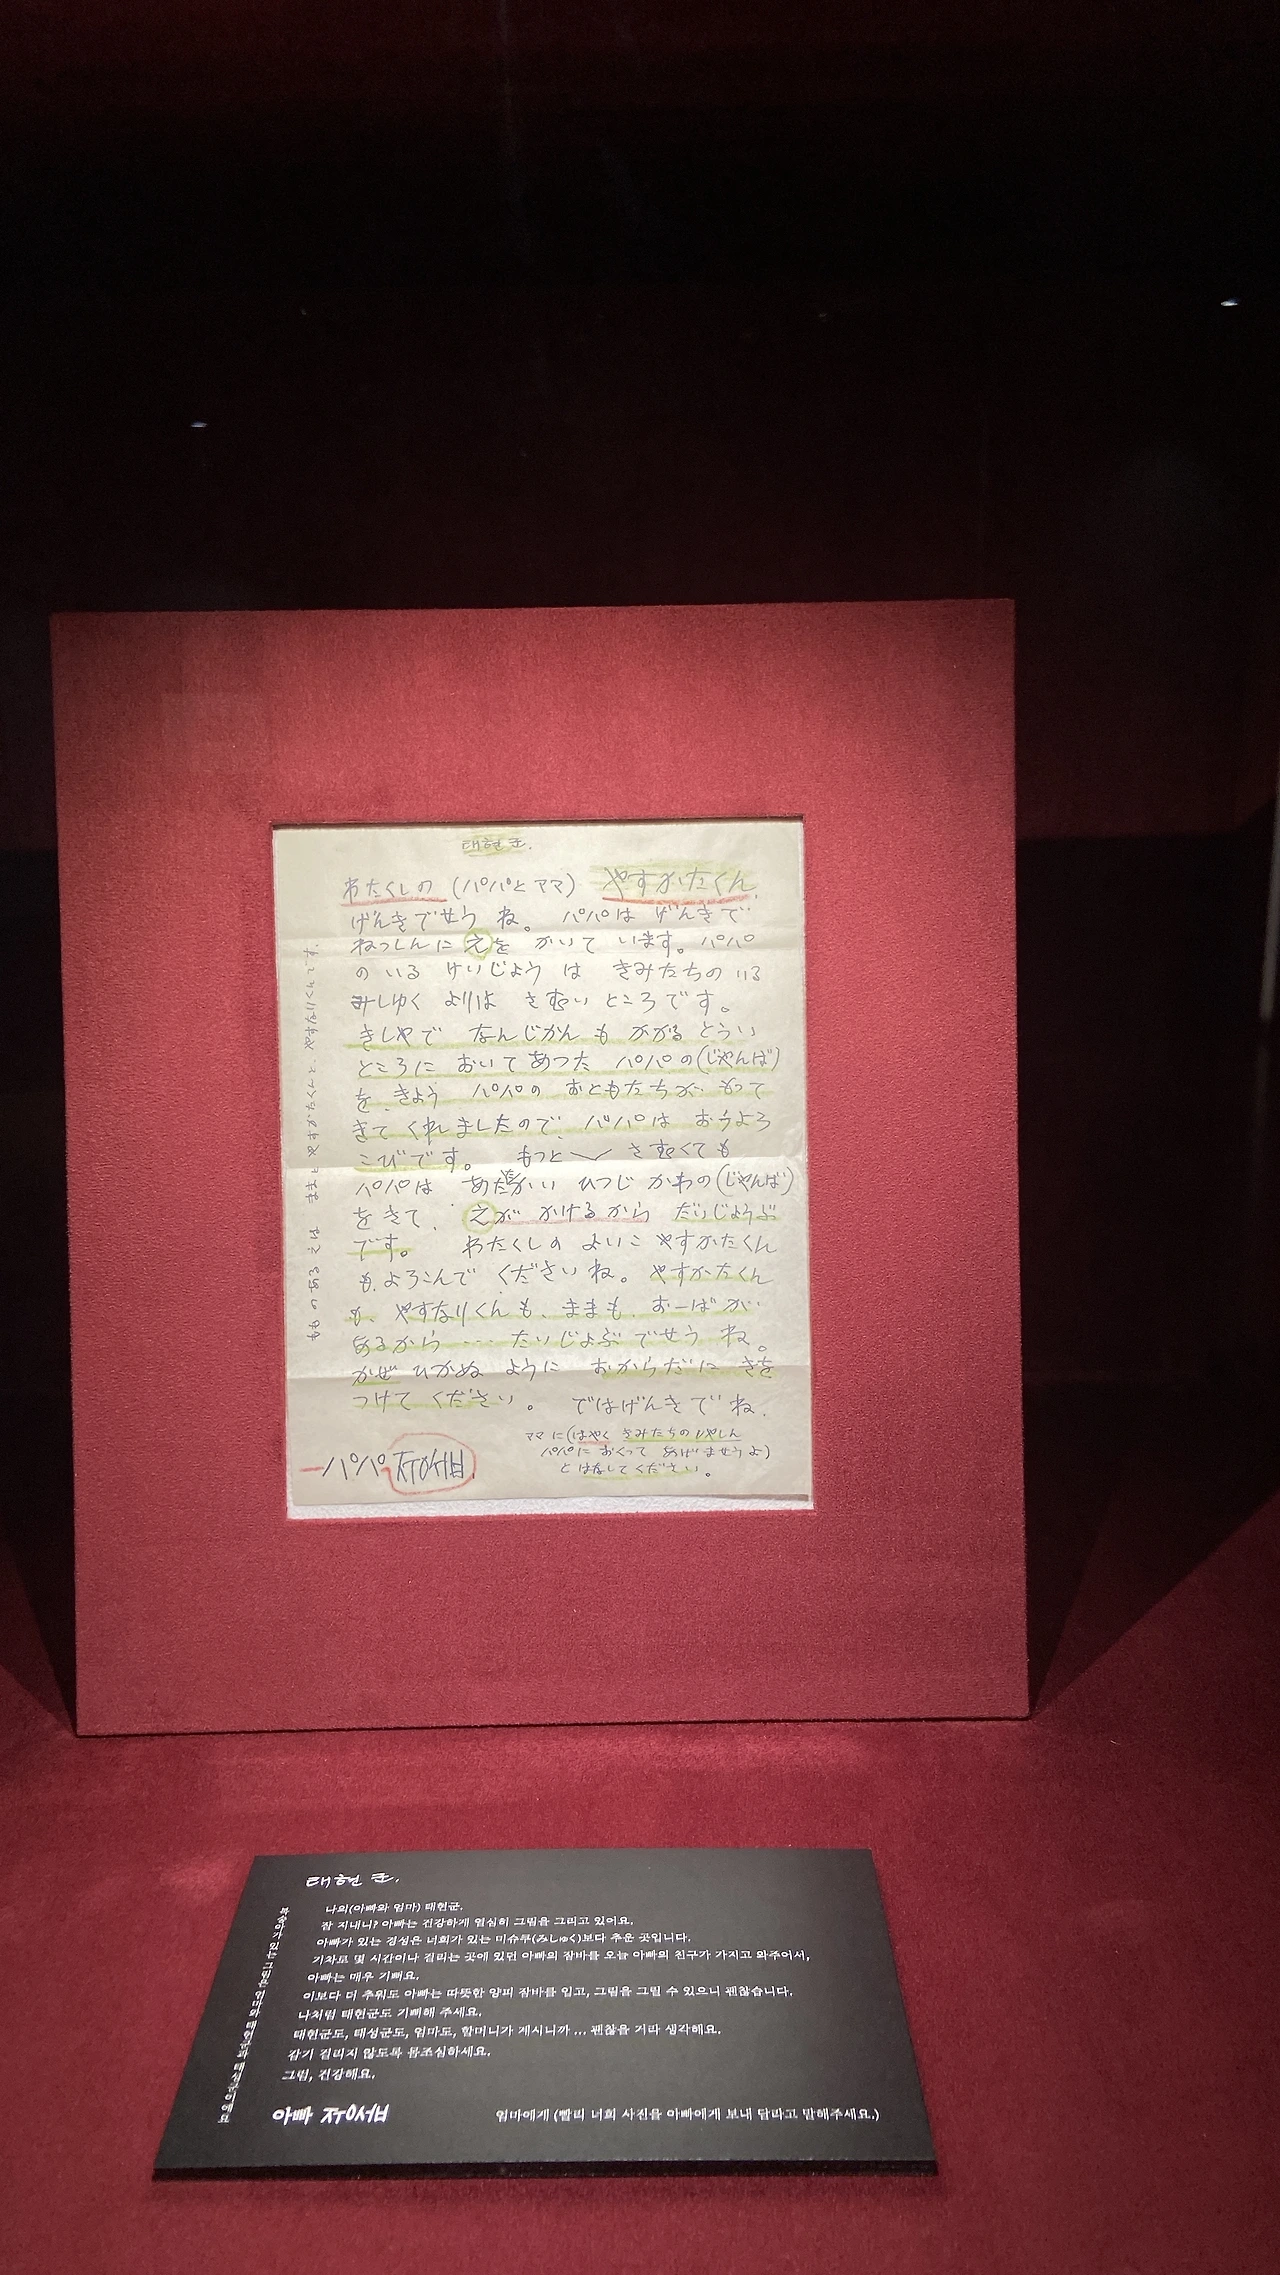 태현군.
わたくしの (パパとママ) やすかたくん.
げんきでせうね。 パパは げんきで
ねっしんに えを かいて います。パパ
の いる けいじょう は きみたちの いる
みしゆく よりは さむい ところです。
きしやで なんじかん も かかる とうい
ところに おいて あつた パパの(じゃんば)
を きょう パパの おともたちが もって
きて くれましたので、パパは おうよろ
こびです。 もっと さむくても
パパは あたたかい ひつじ かわの(じゃんば)
をきて、 えが かけるから だいじょうぶ
です。 わたくしの よいこ やすかたくん
も よろこんで くださいね。やすかたくん
も、やすなりくんも、ままも、おーばが
あるから … たいじょぶ でせう ね。
かぜ ひかぬ ように おからだに きを
つけて ください。 ではげんきで ね.
ママに(はやく きみたちの しやしん
パパに おくって あげませうよ)
と はなして ください。
パパ ㅈㅜㅇㅅㅓㅂ.
ももの ある えは ままと やすかたくんと、やすなりくんとです.
태현 군.
나의(아빠와 엄마) 태현군.
잘 지내니? 아빠는 건강하게 열심히 그림을 그리고 있어요.
아빠가 있는 경성은 너희가 있는 미슈쿠(みしゅく)보다 추운 곳입니다.
기차로 몇 시간이나 걸리는 곳에 있던 아빠의 잠바를 오늘 아빠의 친구가 가지고 와주어서,
아빠는 매우 기뻐요.
이보다 더 추워도 아빠는 따뜻한 양피 잠바를 입고, 그림을 그릴 수 있으니 괜찮습니다.
나처럼 태현군도 기뻐해 주세요.
태현군도, 태성군도, 엄마도, 할머니가 계시니까 ... 괜찮을 거라 생각해요.
감기 걸리지 않도록 몸조심하세요.
그럼, 건강해요.
아빠 ㅈㅜㅇㅅㅓㅂ
엄마에게 (빨리 너희 사진을 아빠에게 보내 달라고 말해주세요.)
복숭아가 있는 그림은 엄마와 태현군과 태성군이에요